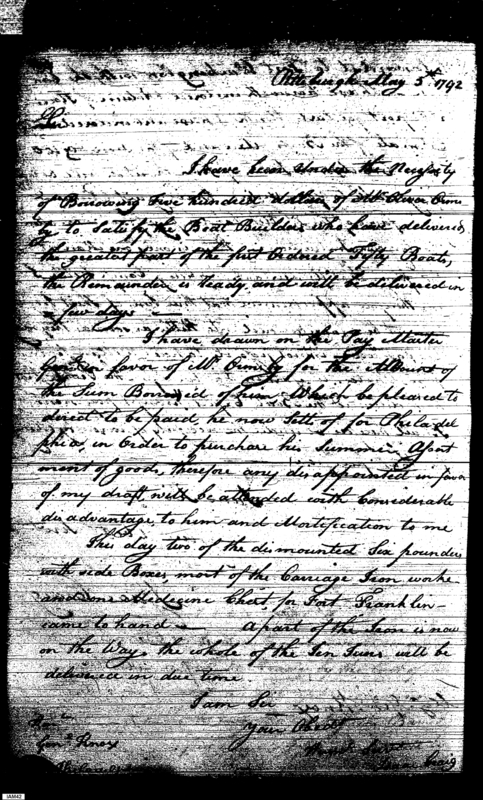 Pittsburgh May 5th 1792
Sir
I have been Under the Nessesity
of Borrowing Five hundred dollars of Mr Oliver Orms
by to Satisfy the Boat Builders who have delivered
the greatest part of the first Ordered Fifty Boats,
the Remainder is Ready and will be delivered in
a few days
I have drawn on the Pay Master
Genl in favor of Mr Ormsby for the Amount of
the Sum Borrowed of him Which be pleased to
direct to be paid, he now Setts of for Philadel
phia, in Order to purchase his Summer Asort
ment of goods, therefore any disappointed in favor
of my draft will be attended with Considerable
disadvantage, to him and Mortification to me
This day two of the dismounted Six pounders
with side Boxes most of the Carriage Iron worke
and one Medicine Chest for Fort Franklin
came to hand — A part of the Iron is now
on the Way, the whole of the Ten Tuns will be
delivered in due time
I am Sir
Your Obedt
Servt
Isaac Craig
Honble
Genl Knox
IAM42